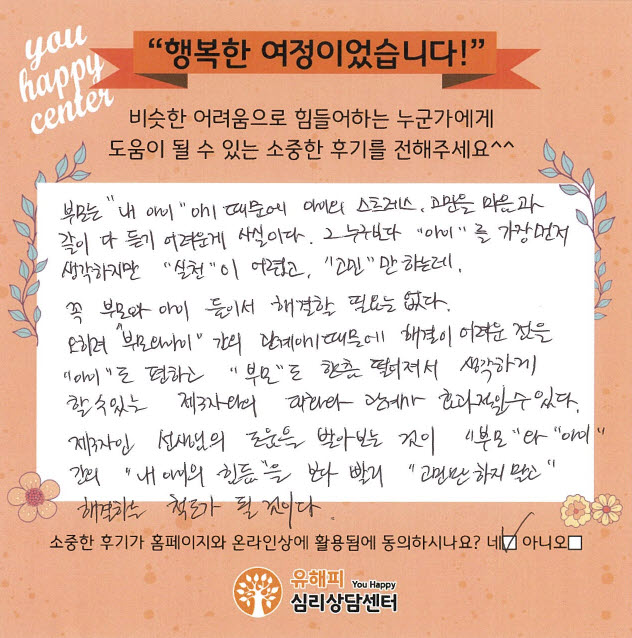 you
happy
center
“행복한 여정이었습니다!”
비슷한 어려움으로 힘들어하는 누군가에게
도움이 될 수 있는 소중한 후기를 전해주세요^^
부모는 "내 아이" 이기 때문에 아이의 스트레스, 고민을 마음과
같이 다 듣기 어려운게 사실이다. 그 누구보다 "아이"를 가장먼저
생각하지만 "실천"이 어렵고, "고민"만 하는데,
꼭 부모와 아이 둘이서 해결할 필요는 없다.
오히려 "부모와아이" 간의 관계이기때문에 해결이 어려운 것을
"아이"도 편하고 "부모"도 한층 떨어져서 생각하게
할 수 있는 제3자와의 대화와 관계가 효과적일 수 있다.
제3자인 선생님의 도움을 받아보는 것이 "부모"와 "아이"
간의 "내 아이의 힘듦"을 보다 빨리 "고민만 하지 말고"
해결하는 척도가 될 것이다.
소중한 후기가 홈페이지와 온라인상에 활용됨에 동의하시나요? 네☑ 아니오☐
유해피 You Happy
심리상담센터